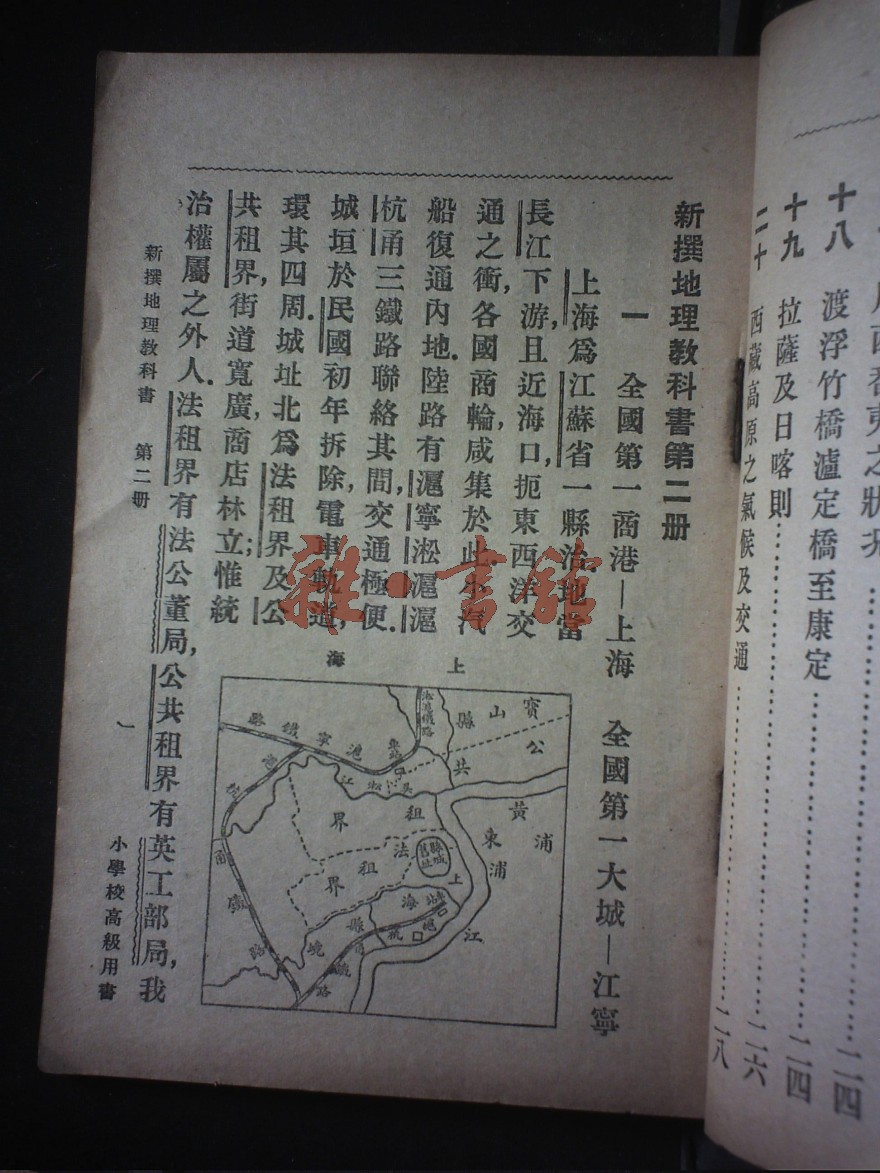 西藏高原之氣候及交通……二六
二十
拉薩及日喀則……二四
十九
渡浮竹橋瀘定橋至康定……二四
十八
二八
新撰地理教科書第二册
一 全國第一商港—上海 全國第一大城—江寧
上海爲江蘇省一縣治地當
長江下游,且近海口,扼東西洋交
通之衝,各國商輪,咸集於此,小汽
船復通內地.陸路有滬寧淞滬滬
杭甬三鐵路聯絡其間,交通極便.
城垣於民國初年拆除,電車軌道,
環其四周.城址北爲法租界及公
共租界,街道寬廣,商店林立;惟統
治權屬之外人.法租界有法公董局,公共租界有英工部局,我
上海
寶山縣
公共租界
法租界
上海縣
縣城舊址
黃浦江
浦東
吳淞江
滬寧鐵路
淞滬鐵路
新撰地理教科書 第二册
一
小學校高級用書
雜·書館